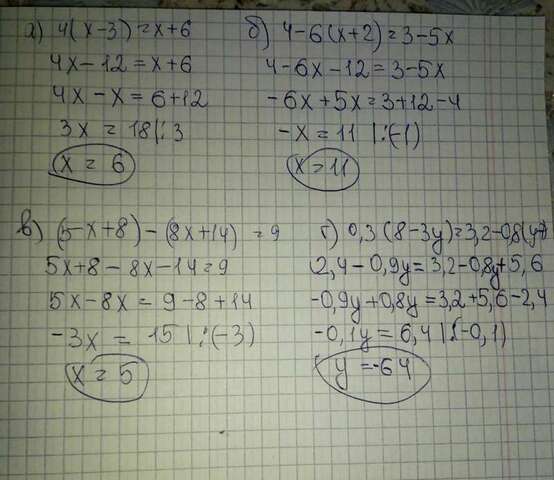 а) 4(x-3)=x+6
4x-12=x+6
4x-x=6+12
3x=18|:3
x=6
б) 4-6(x+2)=3-5x
4-6x-12=3-5x
-6x+5x=3+12-4
-x=11|:(-1)
x=11
в) (5-x+8)-(8x+14)=9
5x+8-8x-14=9
5x-8x=9-8+14
-3x=15|:(-3)
x=5
г) 0,3(8-3y)=3,2-0,8(y-7)
2,4-0,9y=3,2-0,8y+5,6
-0,9y+0,8y=3,2+5,6-2,4
-0,1y=6,4|:(-0,1)
y=-64